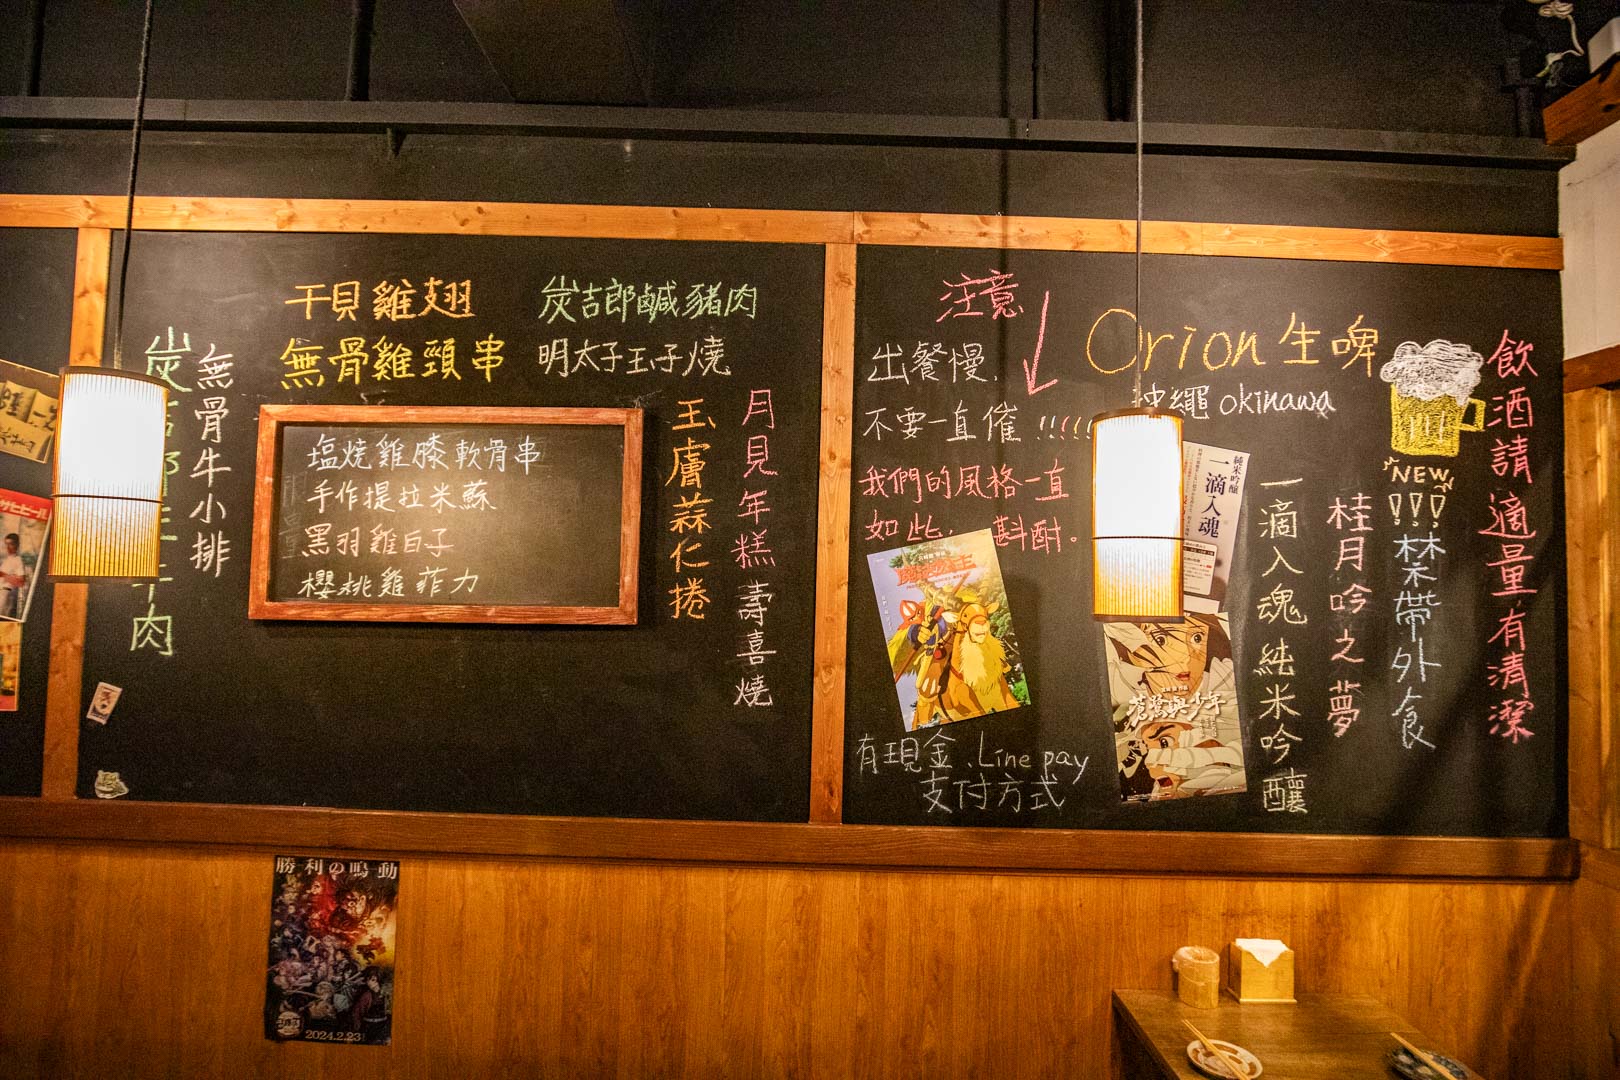 干貝雞翅
無骨雞頸串
炭吉郎鹹豬肉
明太子玉子燒
無骨牛小排
塩燒雞膝軟骨串
手作提拉米蘇
黑羽雞白子
櫻桃雞菲力
玉膚蒜仁捲
月見年糕壽喜燒
注意
出餐慢、
不要一直催!!!!!
我們的風格一直
如此,斟酌。
有現金、Line pay
支付方式
Orion生啤
沖繩okinawa
純米吟釀
一滴入魂
蒼鷺與少年
一滴入魂純米吟釀
桂月吟之夢
NEW
!!!
禁帶外食
飲酒請適量有清潔
勝利の鳴動
2024.2.23